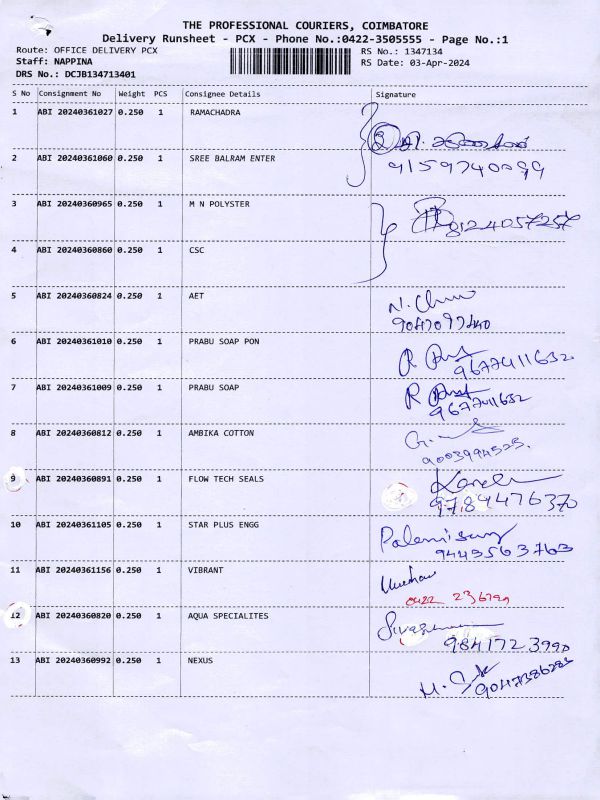 THE PROFESSIONAL COURIERS, COIMBATORE
Delivery Runsheet - PCX - Phone No.:0422-3505555 - Page No.:1
Route: OFFICE DELIVERY PCX
Staff: NAPPINA
DRS No.: DCJB134713401
RS No.: 1347134
RS Date: 03-Apr-2024
S No Consignment No Weight PCS Consignee Details Signature
1 ABI 20240361027 0.250 1 RAMACHADRA
2 ABI 20240361060 0.250 1 SREE BALRAM ENTER 9159740099
3 ABI 20240360965 0.250 1 M N POLYSTER 8124057257
4 ABI 20240360860 0.250 1 CSC
5 ABI 20240360824 0.250 1 AET
6 ABI 20240361010 0.250 1 PRABU SOAP PON 9677411632
7 ABI 20240361009 0.250 1 PRABU SOAP 9677411632
8 ABI 20240360812 0.250 1 AMBIKA COTTON
9 ABI 20240360891 0.250 1 FLOW TECH SEALS 9789476370
10 ABI 20240361105 0.250 1 STAR PLUS ENGG Palanisamy
9443563763
11 ABI 20240361156 0.250 1 VIBRANT
0422
12 ABI 20240360820 0.250 1 AQUA SPECIALITES
9841723990
13 ABI 20240360992 0.250 1 NEXUS